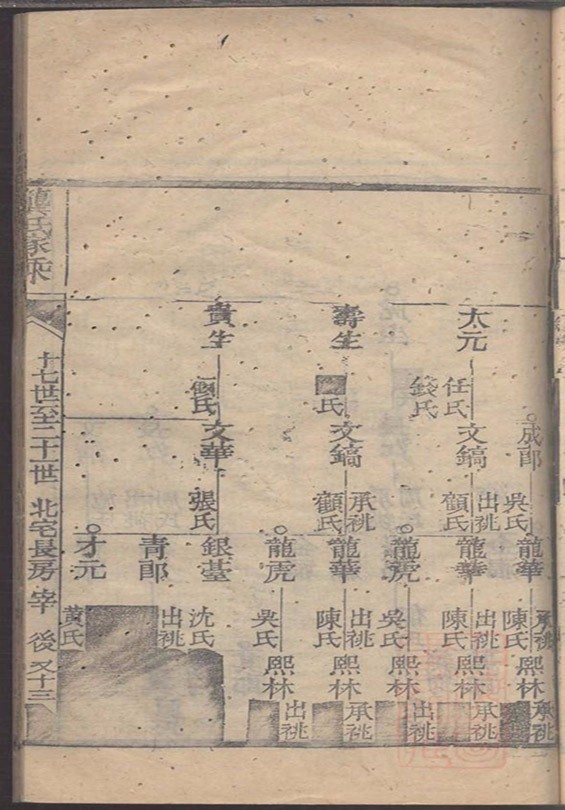 成郎
吳氏
龍華
承祧
陳氏
熙林
承祧
太元
任氏
錢氏
文鎬
出祧
顧氏
龍華
出祧
陳氏
熙林
承祧
龍虎
吳氏
熙林
出祧
壽生
氏
文鎬
承祧
顧氏
龍華
出祧
陳氏
熙林
承祧
龍虎
吳氏
熙林
出祧
貴生
氏
文華
張氏
銀臺
沈氏
青郎
出祧
才元
黄氏
龔氏家乘
十七世至二十一世 北宅長房 宰 後 又十三